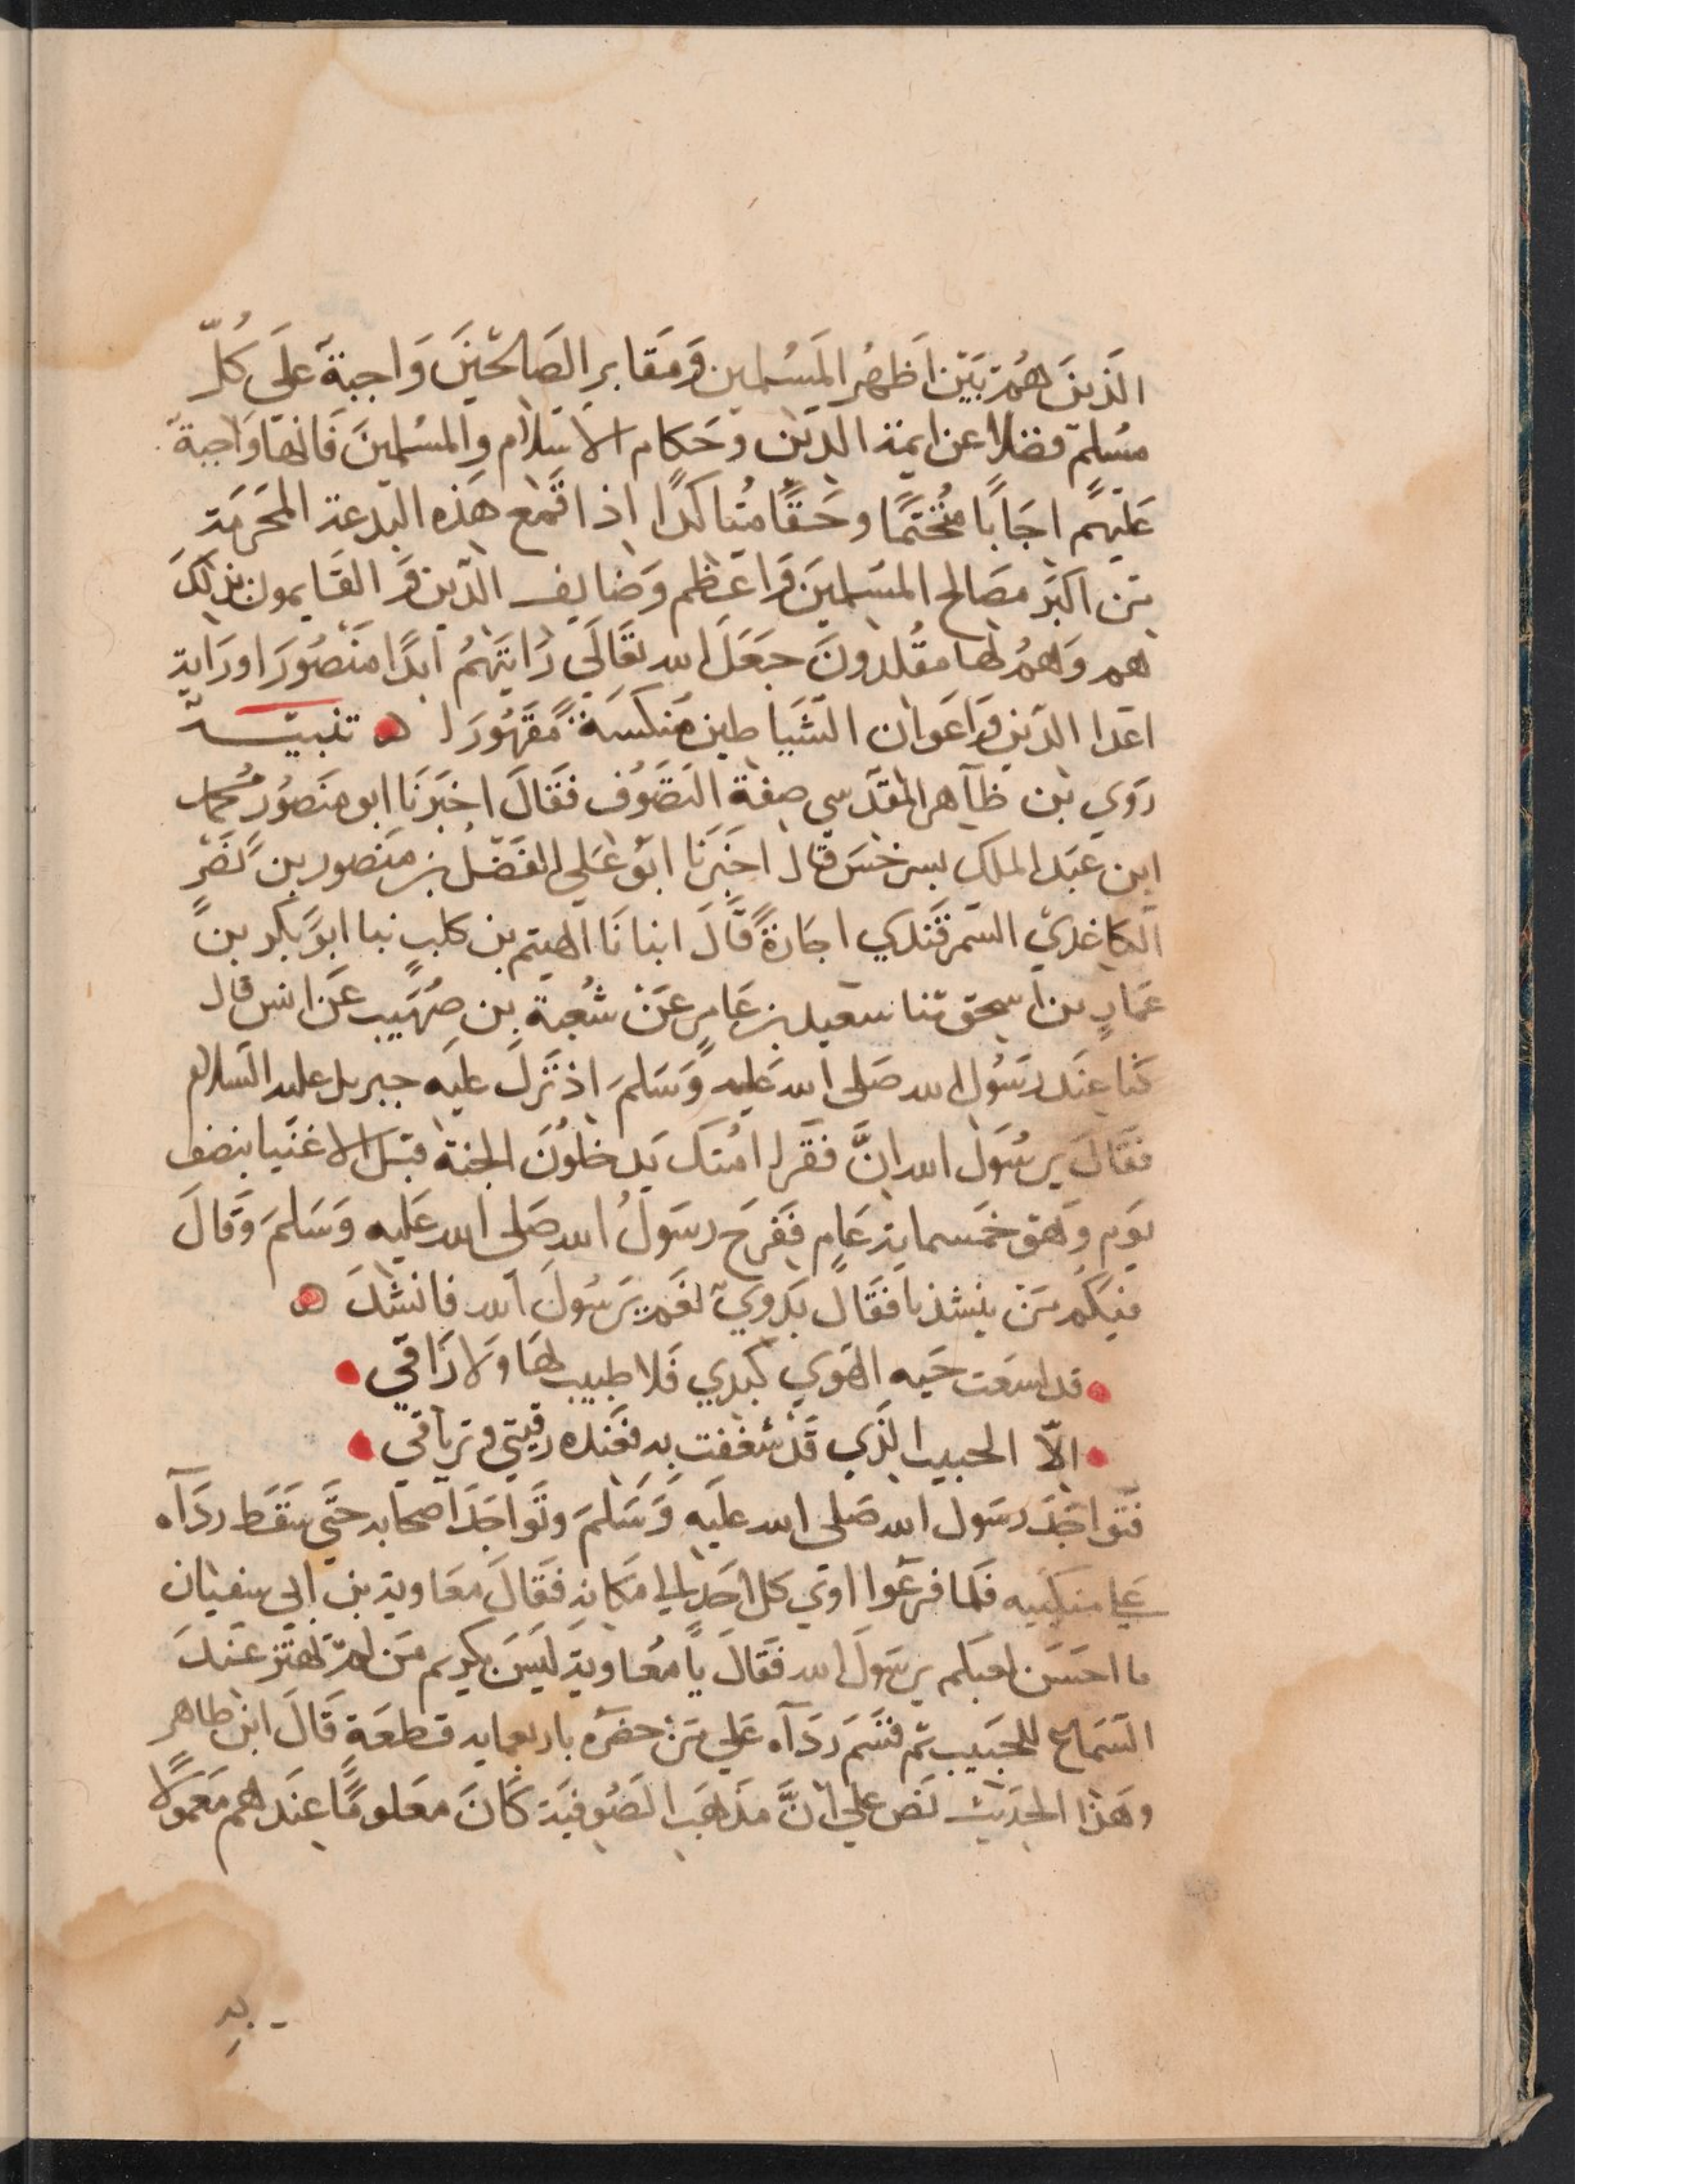 الذين هم بين اظهر المسلمين ومقابر الصالحين واجبة على كل
مسلم فضلا عن ايمة الدين وحكام الاسلام والمسلمين فانها واجبة
عليهم اجابًا منحتمًا وحقًا متاكدًا اذا قمع هذه البدعة المحرمة
من اكبر مصالح المسلمين واعظم وضايف الدين والقايمون بذلك
هم وهم لها مقلدون جعل الله تعالى رايتهم ابدًا منصورا وراية
اعدا الدين واعوان الشياطين منكسة مقهورا ه تنبيه
روي بن طاهر المقدسي صفة التصوف فقال اخبرنا ابو منصور محمد
ابن عبد الملك بسرخس قال اخبرنا ابو علي الفضل بن منصور بن نصر
الكاغدي السمرقندي اجازة قال انبانا الهيتم بن كليب نبا ابو بكر بن
عمار بن اسحق ثنا سعيد بن عامر عن شعبة بن صهيب عن انس قال
كنا عند رسول الله صلى الله عليه وسلم اذ نزل عليه جبريل عليه السلام
فقال يرسول الله ان فقرا امتك يدخلون الجنة قبل الاغنيا بنصف
يوم وهو خمسماية عام ففرح رسول الله صلى الله عليه وسلم وقال
فيكم من ينشدنا فقال بدوي نعم يرسول الله فانشد ه
قد لسعت حيه الهوي كبدي فلا طبيب لها ولا راقي
الا الحبيب الذي قد شغفت به فعنده رقيتي وترياقي
فتواجد رسول الله صلى الله عليه وسلم وتواجد اصحابه حتى سقط ردآه
على منكبيه فلما فرغوا اوي كل احد الى مكانه فقال معاوية بن ابي سفيان
ما احسن لعبكم يرسول الله فقال يا معاوية ليس بكريم من لم يهتز عند
السماع للحبيب ثم قسم ردآه علي من حضره باربعمايه قطعة قال ابن طاهر
وهذا الحديث نص علي ان مذهب الصوفية كان معلومًا عندهم معمولًا
به